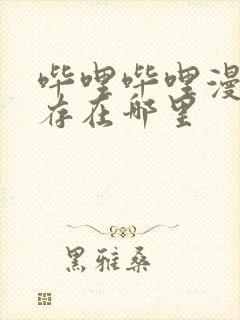 哔哩哔哩漫
存在哪里
黑雅桑